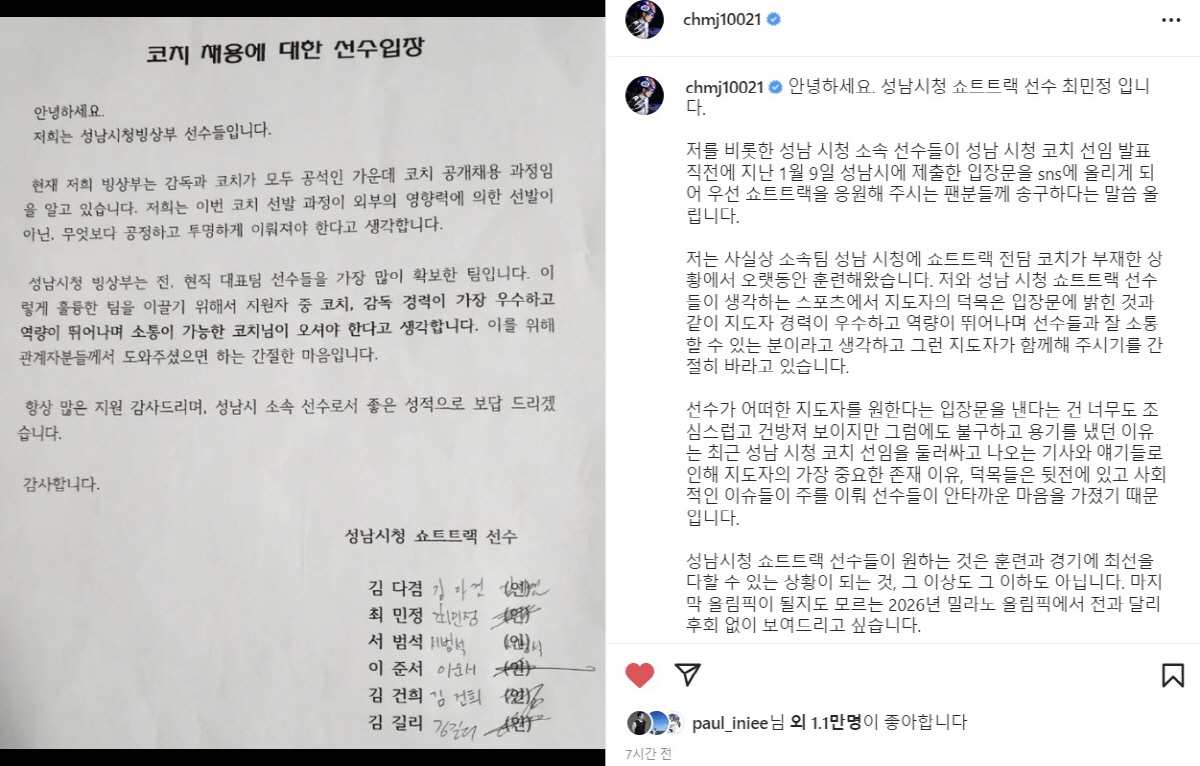 코치 채용에 대한 선수입장
안녕하세요.
저희는 성남시청빙상부 선수들입니다.
현재 저희 빙상부는 감독과 코치가 모두 공석인 가운데 코치 공개채용 과정임
을 알고 있습니다. 저희는 이번 코치 선발 과정이 외부의 영향력에 의한 선발이
아닌, 무엇보다 공정하고 투명하게 이뤄져야 한다고 생각합니다.
성남시청 빙상부는 전, 현직 대표팀 선수들을 가장 많이 확보한 팀입니다. 이
렇게 훌륭한 팀을 이끌기 위해서 지원자 중 코치, 감독 경력이 가장 우수하고
역량이 뛰어나며 소통이 가능한 코치님이 오셔야 한다고 생각합니다. 이를 위해
관계자분들께서 도와주셨으면 하는 간절한 마음입니다.
항상 많은 지원 감사드리며, 성남시 소속 선수로서 좋은 성적으로 보답 드리겠
습니다.
감사합니다.
성남시청 쇼트트랙 선수
김 다겸 김다겸 (인)
최 민정 최민정 (인)
서 범석 서범석 (인)
이 준서 이준서 (인)
김 건희 김건희 (인)
김 길리 김길리 (인)
chmj10021
chmj10021 안녕하세요. 성남시청 쇼트트랙 선수 최민정 입니
다.
저를 비롯한 성남 시청 소속 선수들이 성남 시청 코치 선임 발표
직전에 지난 1월 9일 성남시에 제출한 입장문을 sns에 올리게 되
어 우선 쇼트트랙을 응원해 주시는 팬분들께 송구하다는 말씀 올
립니다.
저는 사실상 소속팀 성남 시청에 쇼트트랙 전담 코치가 부재한 상
황에서 오랫동안 훈련해왔습니다. 저와 성남 시청 쇼트트랙 선수
들이 생각하는 스포츠에서 지도자의 덕목은 입장문에 밝힌 것과
같이 지도자 경력이 우수하고 역량이 뛰어나며 선수들과 잘 소통
할 수 있는 분이라고 생각하고 그런 지도자가 함께해 주시기를 간
절히 바라고 있습니다.
선수가 어떠한 지도자를 원한다는 입장문을 낸다는 건 너무도 조
심스럽고 건방져 보이지만 그럼에도 불구하고 용기를 냈던 이유
는 최근 성남 시청 코치 선임을 둘러싸고 나오는 기사와 얘기들로
인해 지도자의 가장 중요한 존재 이유, 덕목들은 뒷전에 있고 사회
적인 이슈들이 주를 이뤄 선수들이 안타까운 마음을 가졌기 때문
입니다.
성남시청 쇼트트랙 선수들이 원하는 것은 훈련과 경기에 최선을
다할 수 있는 상황이 되는 것, 그 이상도 그 이하도 아닙니다. 마지
막 올림픽이 될지도 모르는 2026년 밀라노 올림픽에서 전과 달리
후회 없이 보여드리고 싶습니다.
paul_iniee님 외 1.1만명이 좋아합니다
7시간 전